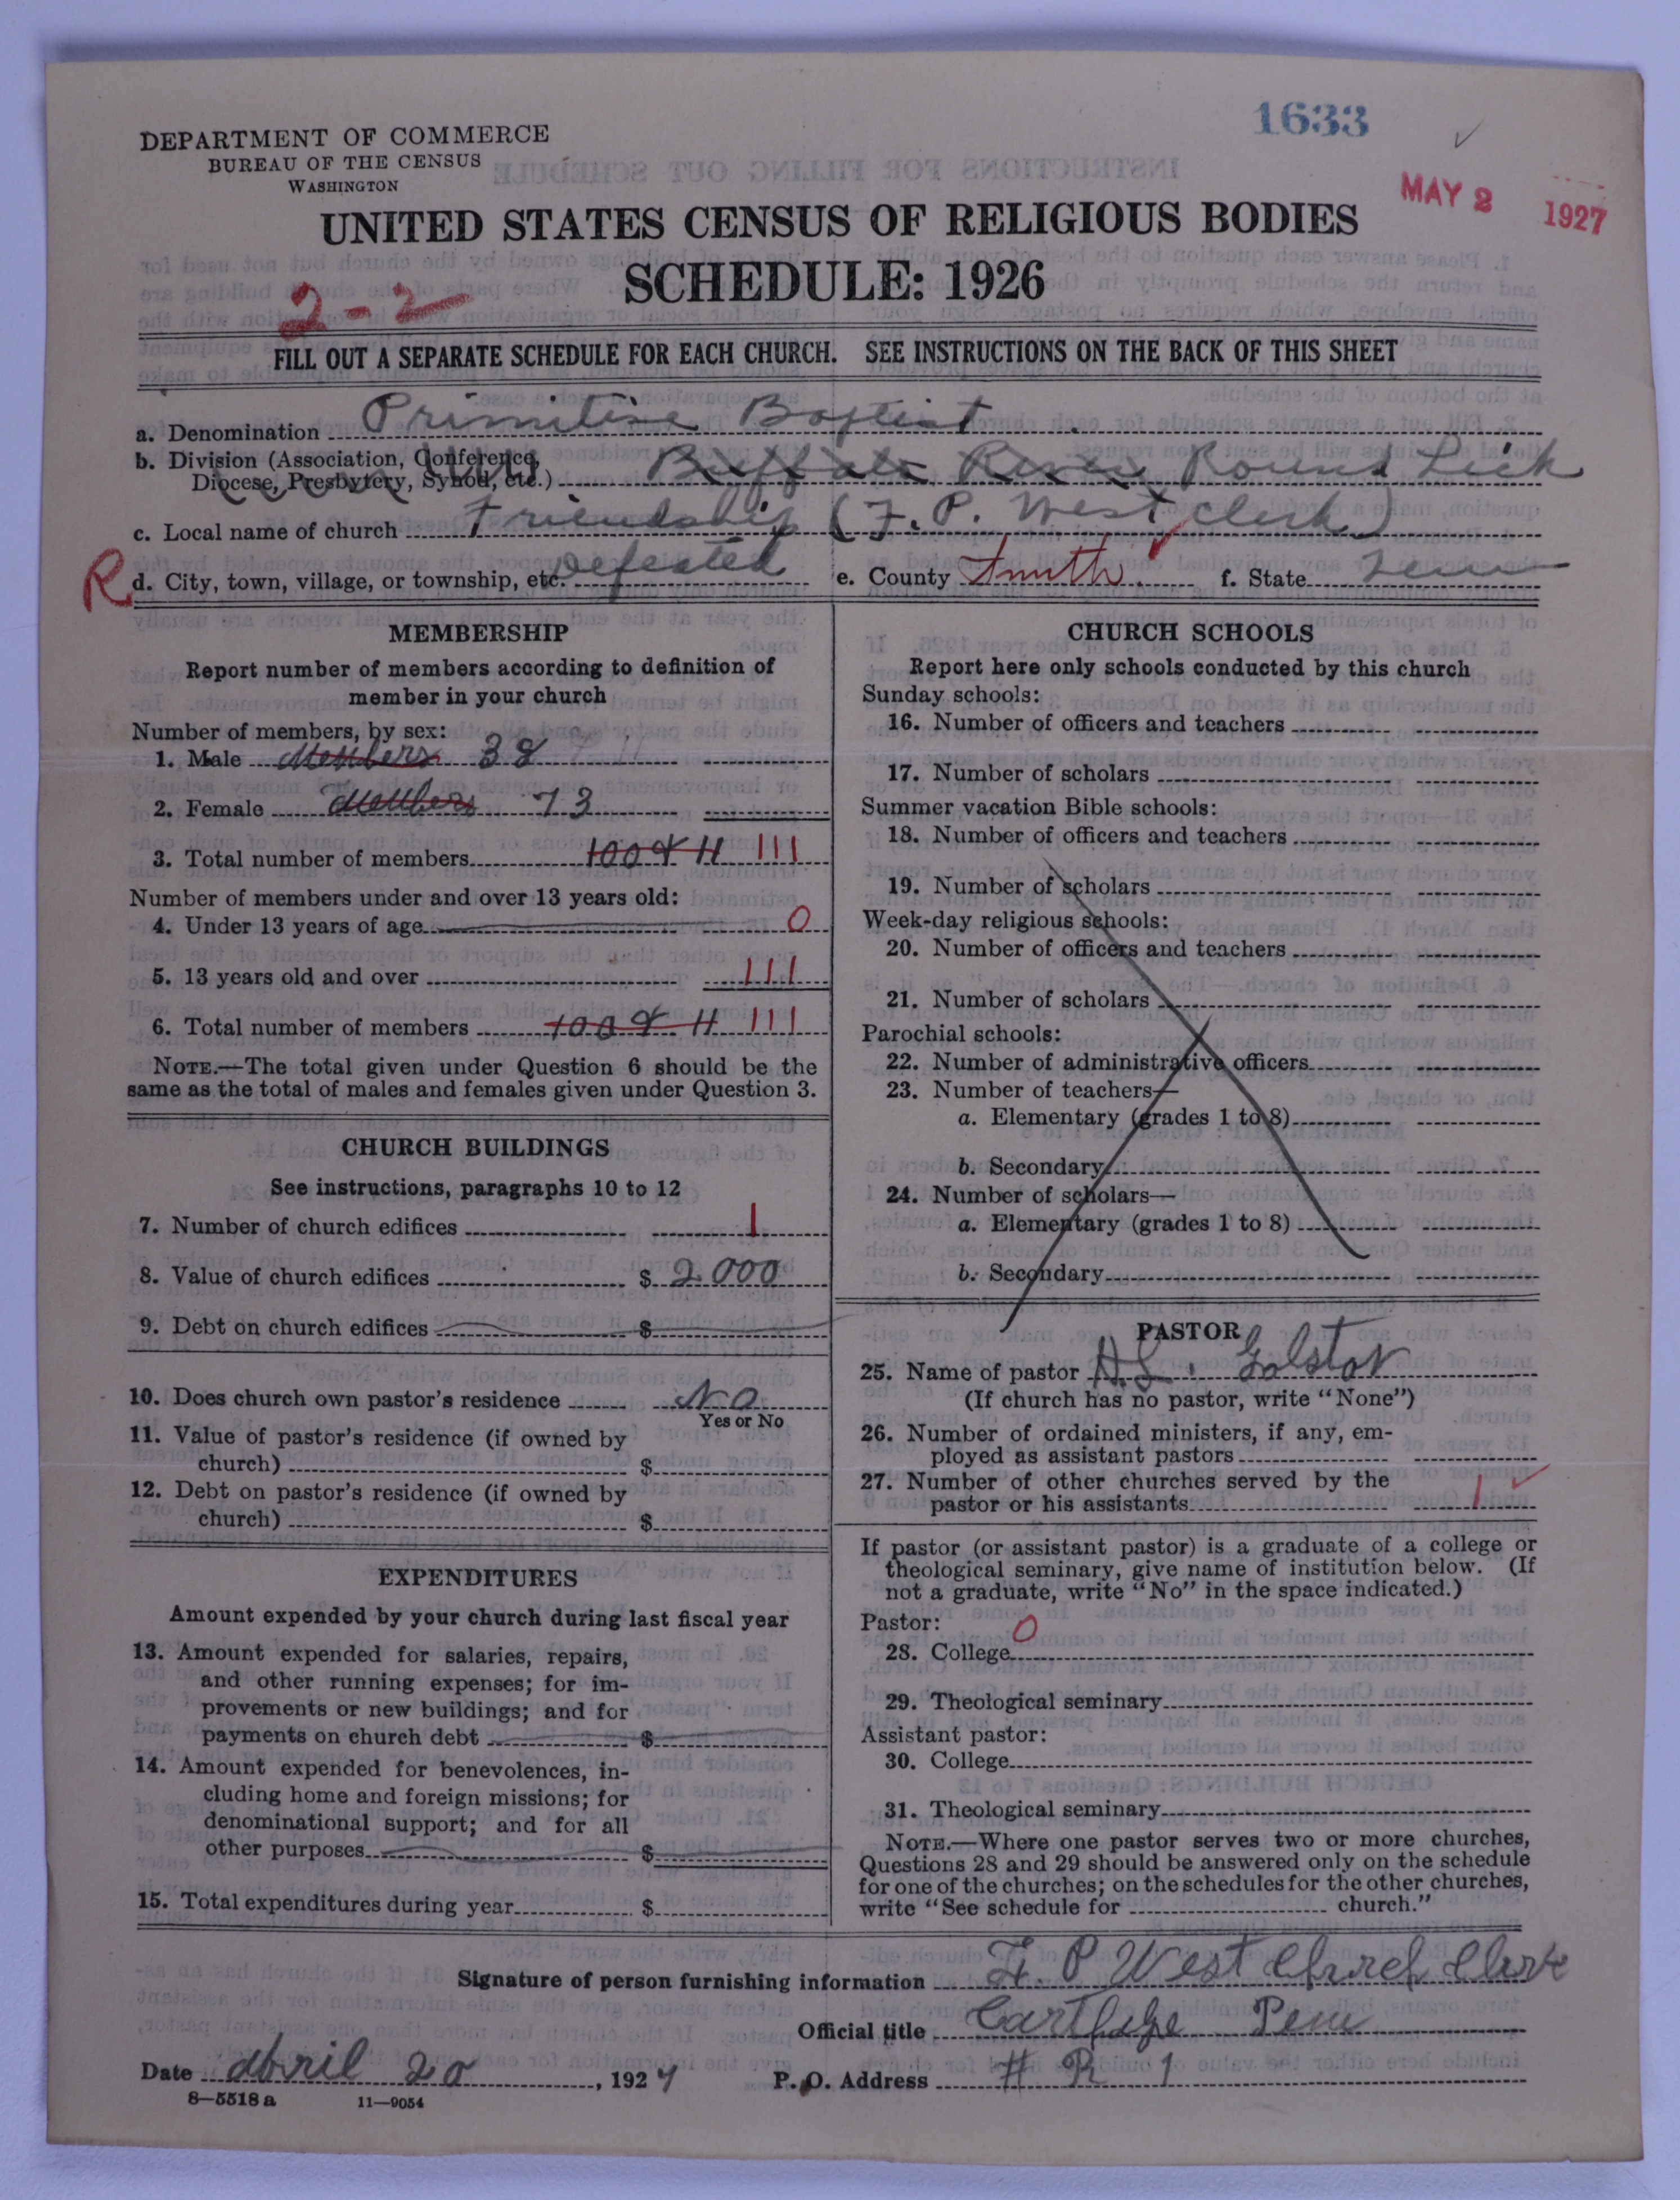 1633
DEPARTMENT OF COMMERCE
BUREAU OF THE CENSUS
WASHINGTON
MAY 2 1927
UNITED STATES CENSUS OF RELIGIOUS BODIES
SCHEDULE: 1926
2-2
FILL OUT A SEPARATE SCHEDULE FOR EACH CHURCH. SEE INSTRUCTIONS ON THE BACK OF THIS SHEET
a. Denomination Primitive Baptist
b. Division (Association, Conference, Diocese, Presbytery, Synod, etc.) Buffalo River Round Lick
c. Local name of church Friendship (F. P. West clerk)
R d. City, town, village, or township, etc. Defeated e. County Smith f. State Tenn
MEMBERSHIP
Report number of members according to definition of
member in your church
Number of members, by sex:
1. Male Members 38
2. Female Members 73
3. Total number of members 100 & 11 111
Number of members under and over 13 years old:
4. Under 13 years of age 0
5. 13 years old and over 111
6. Total number of members 100 & 11 111
NOTE.—The total given under Question 6 should be the
same as the total of males and females given under Question 3.
CHURCH BUILDINGS
See instructions, paragraphs 10 to 12
7. Number of church edifices 1
8. Value of church edifices $ 2000
9. Debt on church edifices $
10. Does church own pastor's residence No
Yes or No
11. Value of pastor's residence (if owned by
church) $
12. Debt on pastor's residence (if owned by
church) $
EXPENDITURES
Amount expended by your church during last fiscal year
13. Amount expended for salaries, repairs,
and other running expenses; for im-
provements or new buildings; and for
payments on church debt $
14. Amount expended for benevolences, in-
cluding home and foreign missions; for
denominational support; and for all
other purposes $
15. Total expenditures during year $
CHURCH SCHOOLS
Report here only schools conducted by this church
Sunday schools:
16. Number of officers and teachers
17. Number of scholars
Summer vacation Bible schools:
18. Number of officers and teachers
19. Number of scholars
Week-day religious schools:
20. Number of officers and teachers
21. Number of scholars
Parochial schools:
22. Number of administrative officers
23. Number of teachers—
a. Elementary (grades 1 to 8)
b. Secondary
24. Number of scholars—
a. Elementary (grades 1 to 8)
b. Secondary
PASTOR
25. Name of pastor H.L. Golston
(If church has no pastor, write "None")
26. Number of ordained ministers, if any, em-
ployed as assistant pastors
27. Number of other churches served by the
pastor or his assistants 1
If pastor (or assistant pastor) is a graduate of a college or
theological seminary, give name of institution below. (If
not a graduate, write "No" in the space indicated.)
Pastor:
28. College 0
29. Theological seminary
Assistant pastor:
30. College
31. Theological seminary
NOTE.—Where one pastor serves two or more churches,
Questions 28 and 29 should be answered only on the schedule
for one of the churches; on the schedules for the other churches,
write "See schedule for church."
Signature of person furnishing information F. P West Church Clerk
Official title Carthage Tenn
Date abril 20, 1927 P. O. Address # R 1
8—5518 a 11—9054